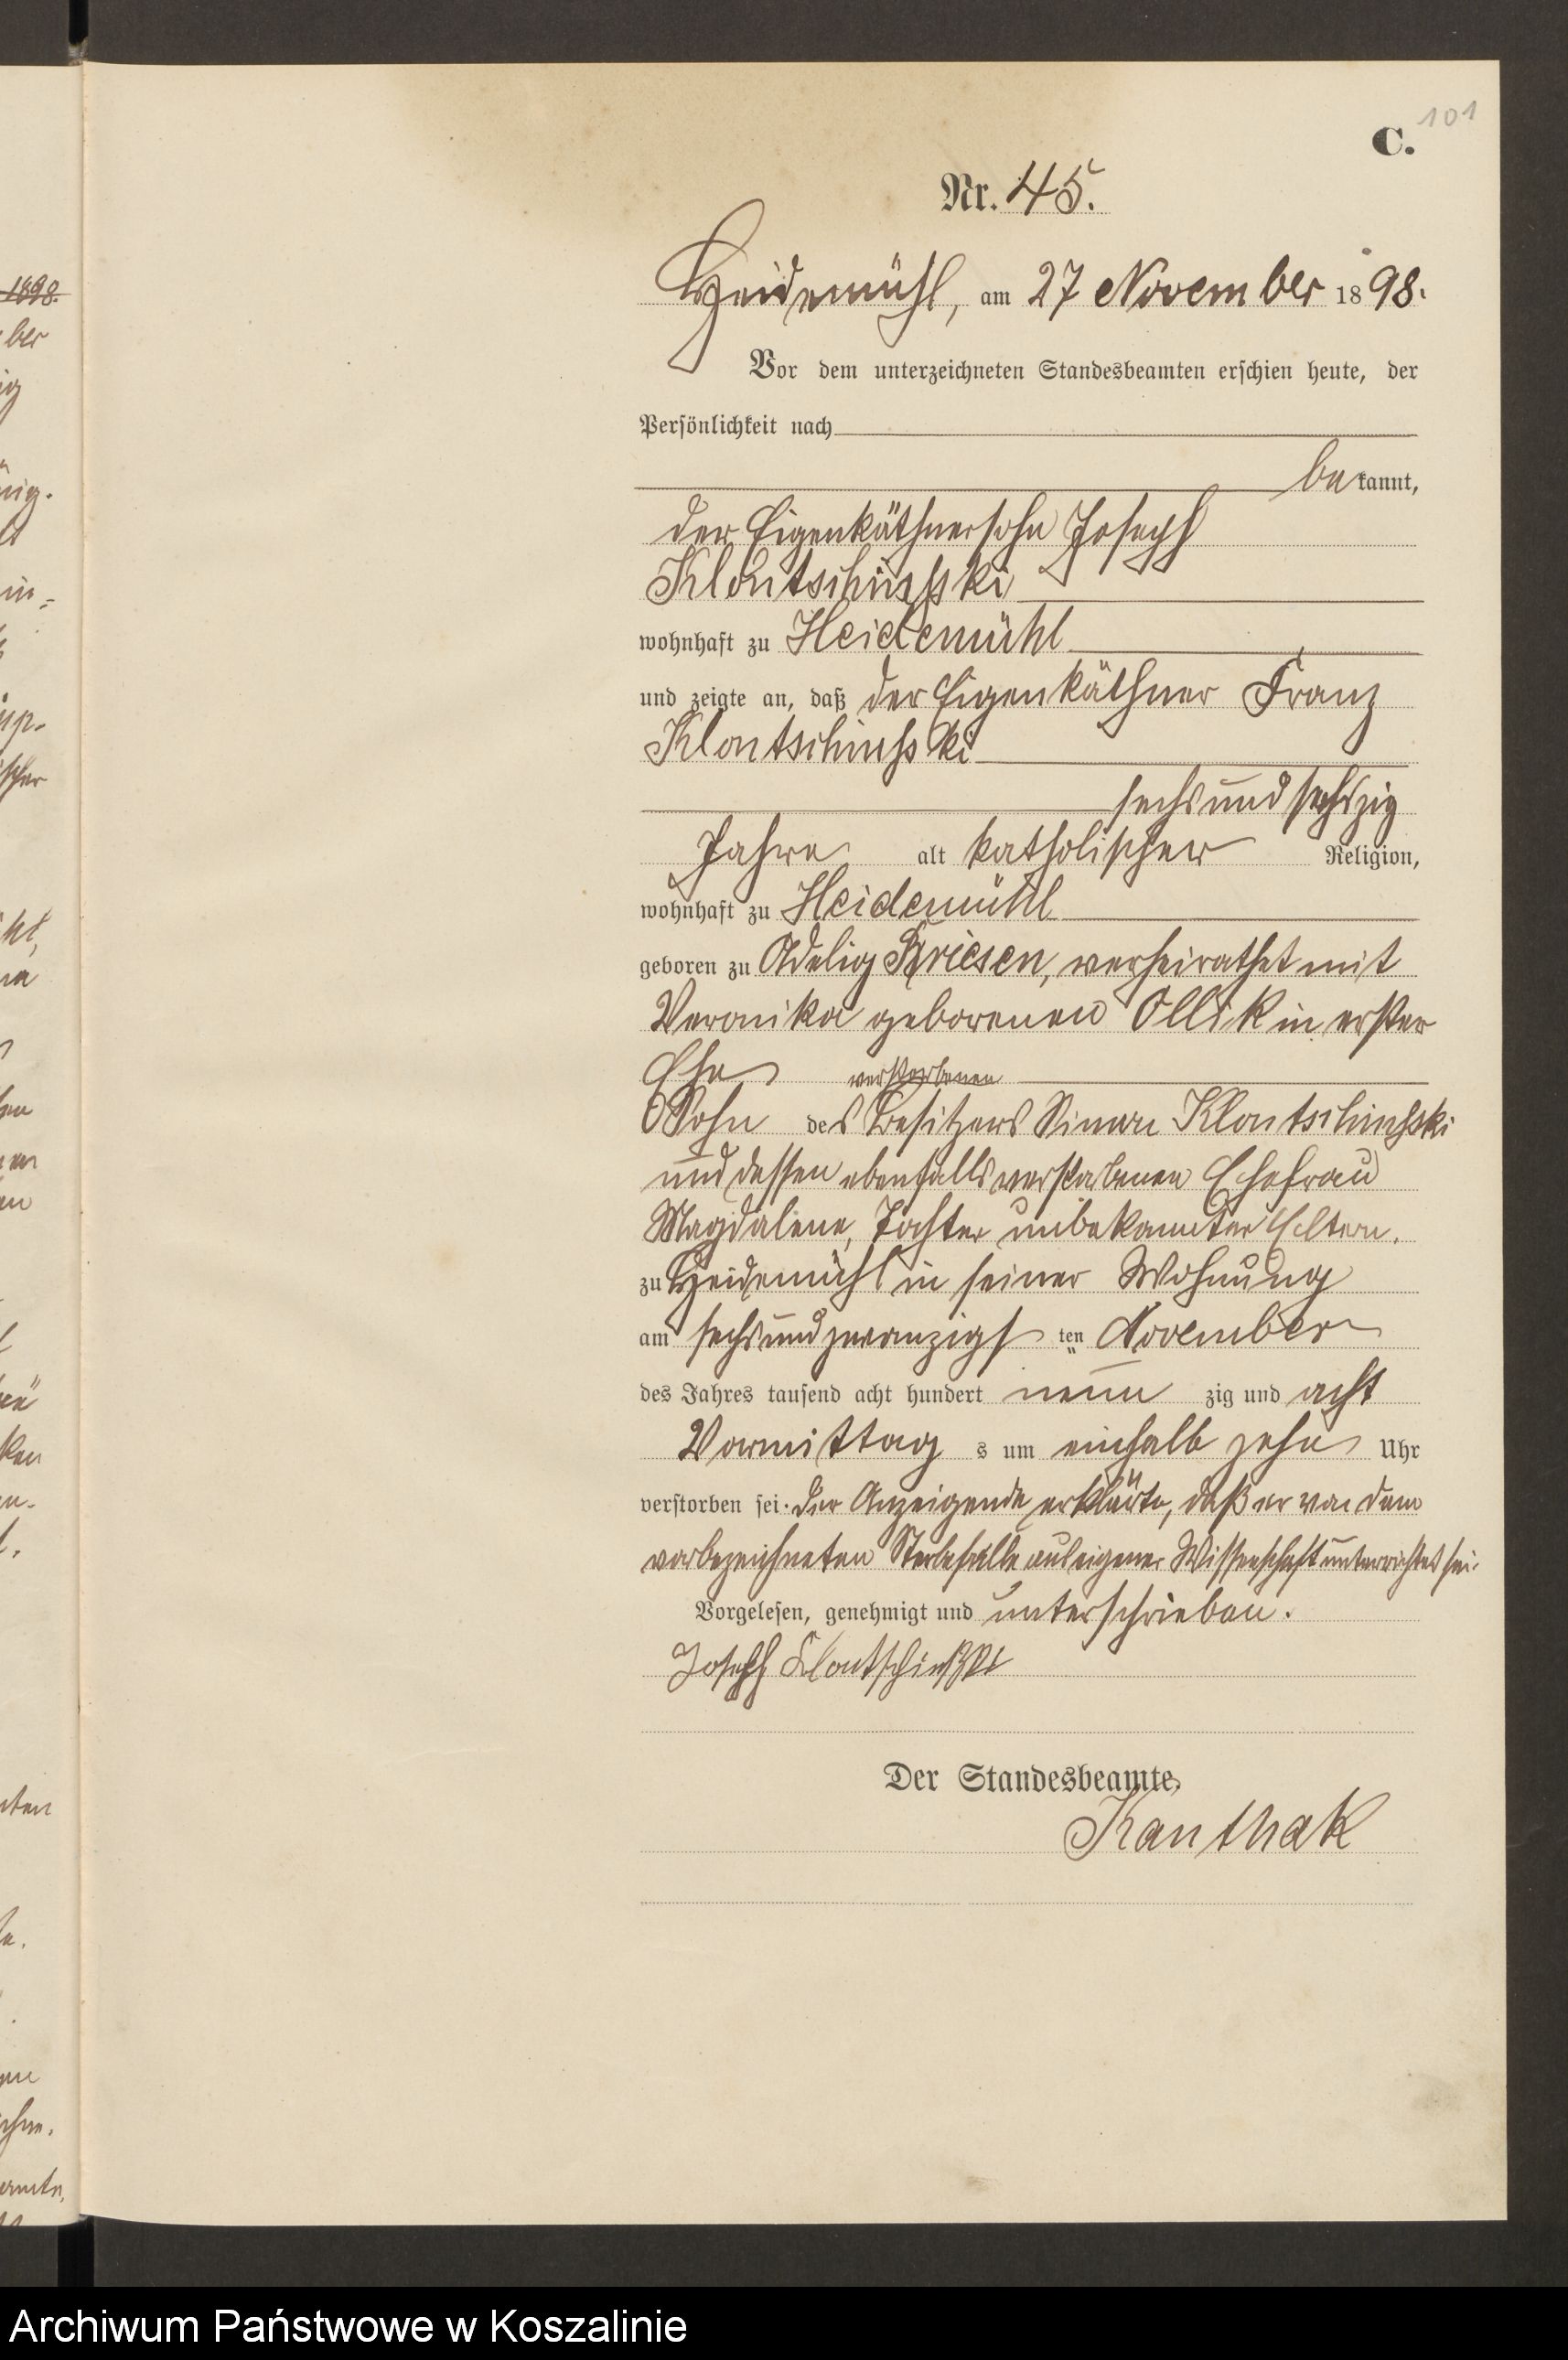 101
C.
Nr. 45.
Heidemühl, am 27 November 1898.
Vor dem unterzeichneten Standesbeamten erschien heute, der
Persönlichkeit nach
bekannt,
der Eigenkäthnersohn Joseph
Klontschinski
wohnhaft zu Heidemühl
und zeigte an, daß der Eigenkäthner Franz
Klontschinski
sechsundsechszig
Jahre alt katholischer Religion,
wohnhaft zu Heidemühl
geboren zu Adelig Briesen, verheirathet mit
Veronika geborenen Ollik in erster
Ehe
verstorbenen
Sohn des Besitzers Simon Klontschinski
und dessen ebenfalls verstorbenen Ehefrau
Magdalene, Tochter unbekannter Eltern.
zu Heidemühl in seiner Wohnung
am sechsundzwanzigsten November
des Jahres tausend acht hundert neunzig und acht
Vormittags um einhalb zehn Uhr
verstorben sei. Der Anzeigende erklärte, daß er von dem
vorbezeichneten Sterbefalle aus eigener Wissenschaft unterrichtet sei.
Vorgelesen, genehmigt und unterschrieben.
Joseph Klontschinski
Der Standesbeamte,
Kanthak
1898.
ber
Archiwum Państwowe w Koszalinie